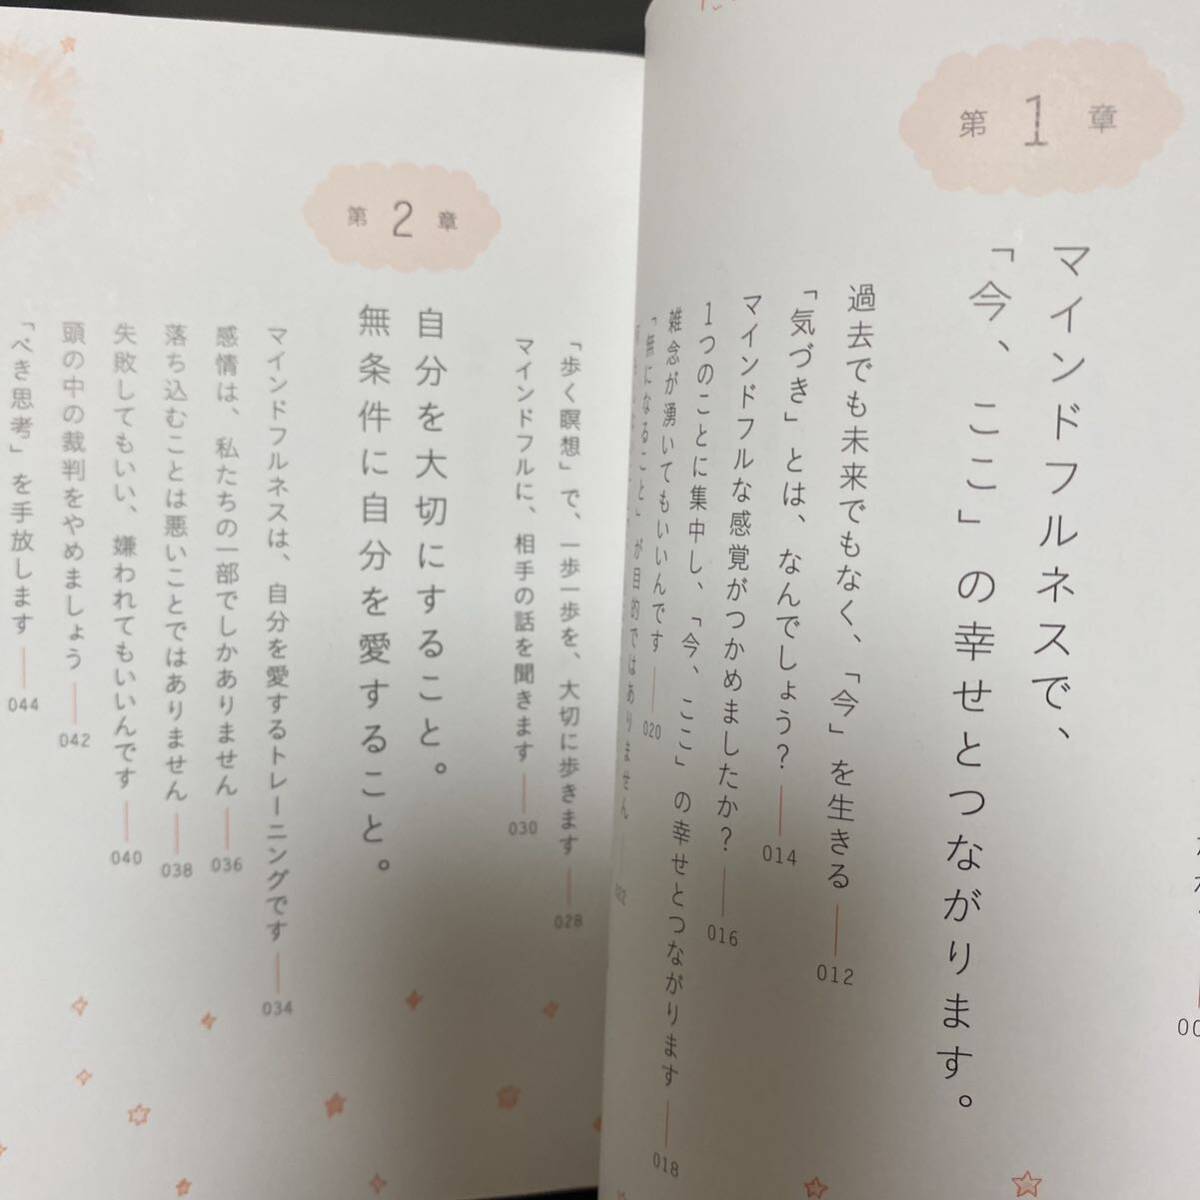 第1章
マインドフルネスで、
「今、ここ」の幸せとつながります。
過去でも未来でもなく、「今」を生きる 012
「気づき」とは、なんでしょう? 014
マインドフルな感覚がつかめましたか? 016
1つのことに集中し、「今、ここ」の幸せとつながります 018
雑念が湧いてもいいんです 020
「無になること」が目的ではありません 022
「歩く瞑想」で、一歩一歩を、大切に歩きます 028
マインドフルに、相手の話を聞きます 030
第2章
自分を大切にすること。
無条件に自分を愛すること。
マインドフルネスは、自分を愛するトレーニングです 034
感情は、私たちの一部でしかありません 036
落ち込むことは悪いことではありません 038
失敗してもいい、嫌われてもいいんです 040
頭の中の裁判をやめましょう 042
「べき思考」を手放します 044